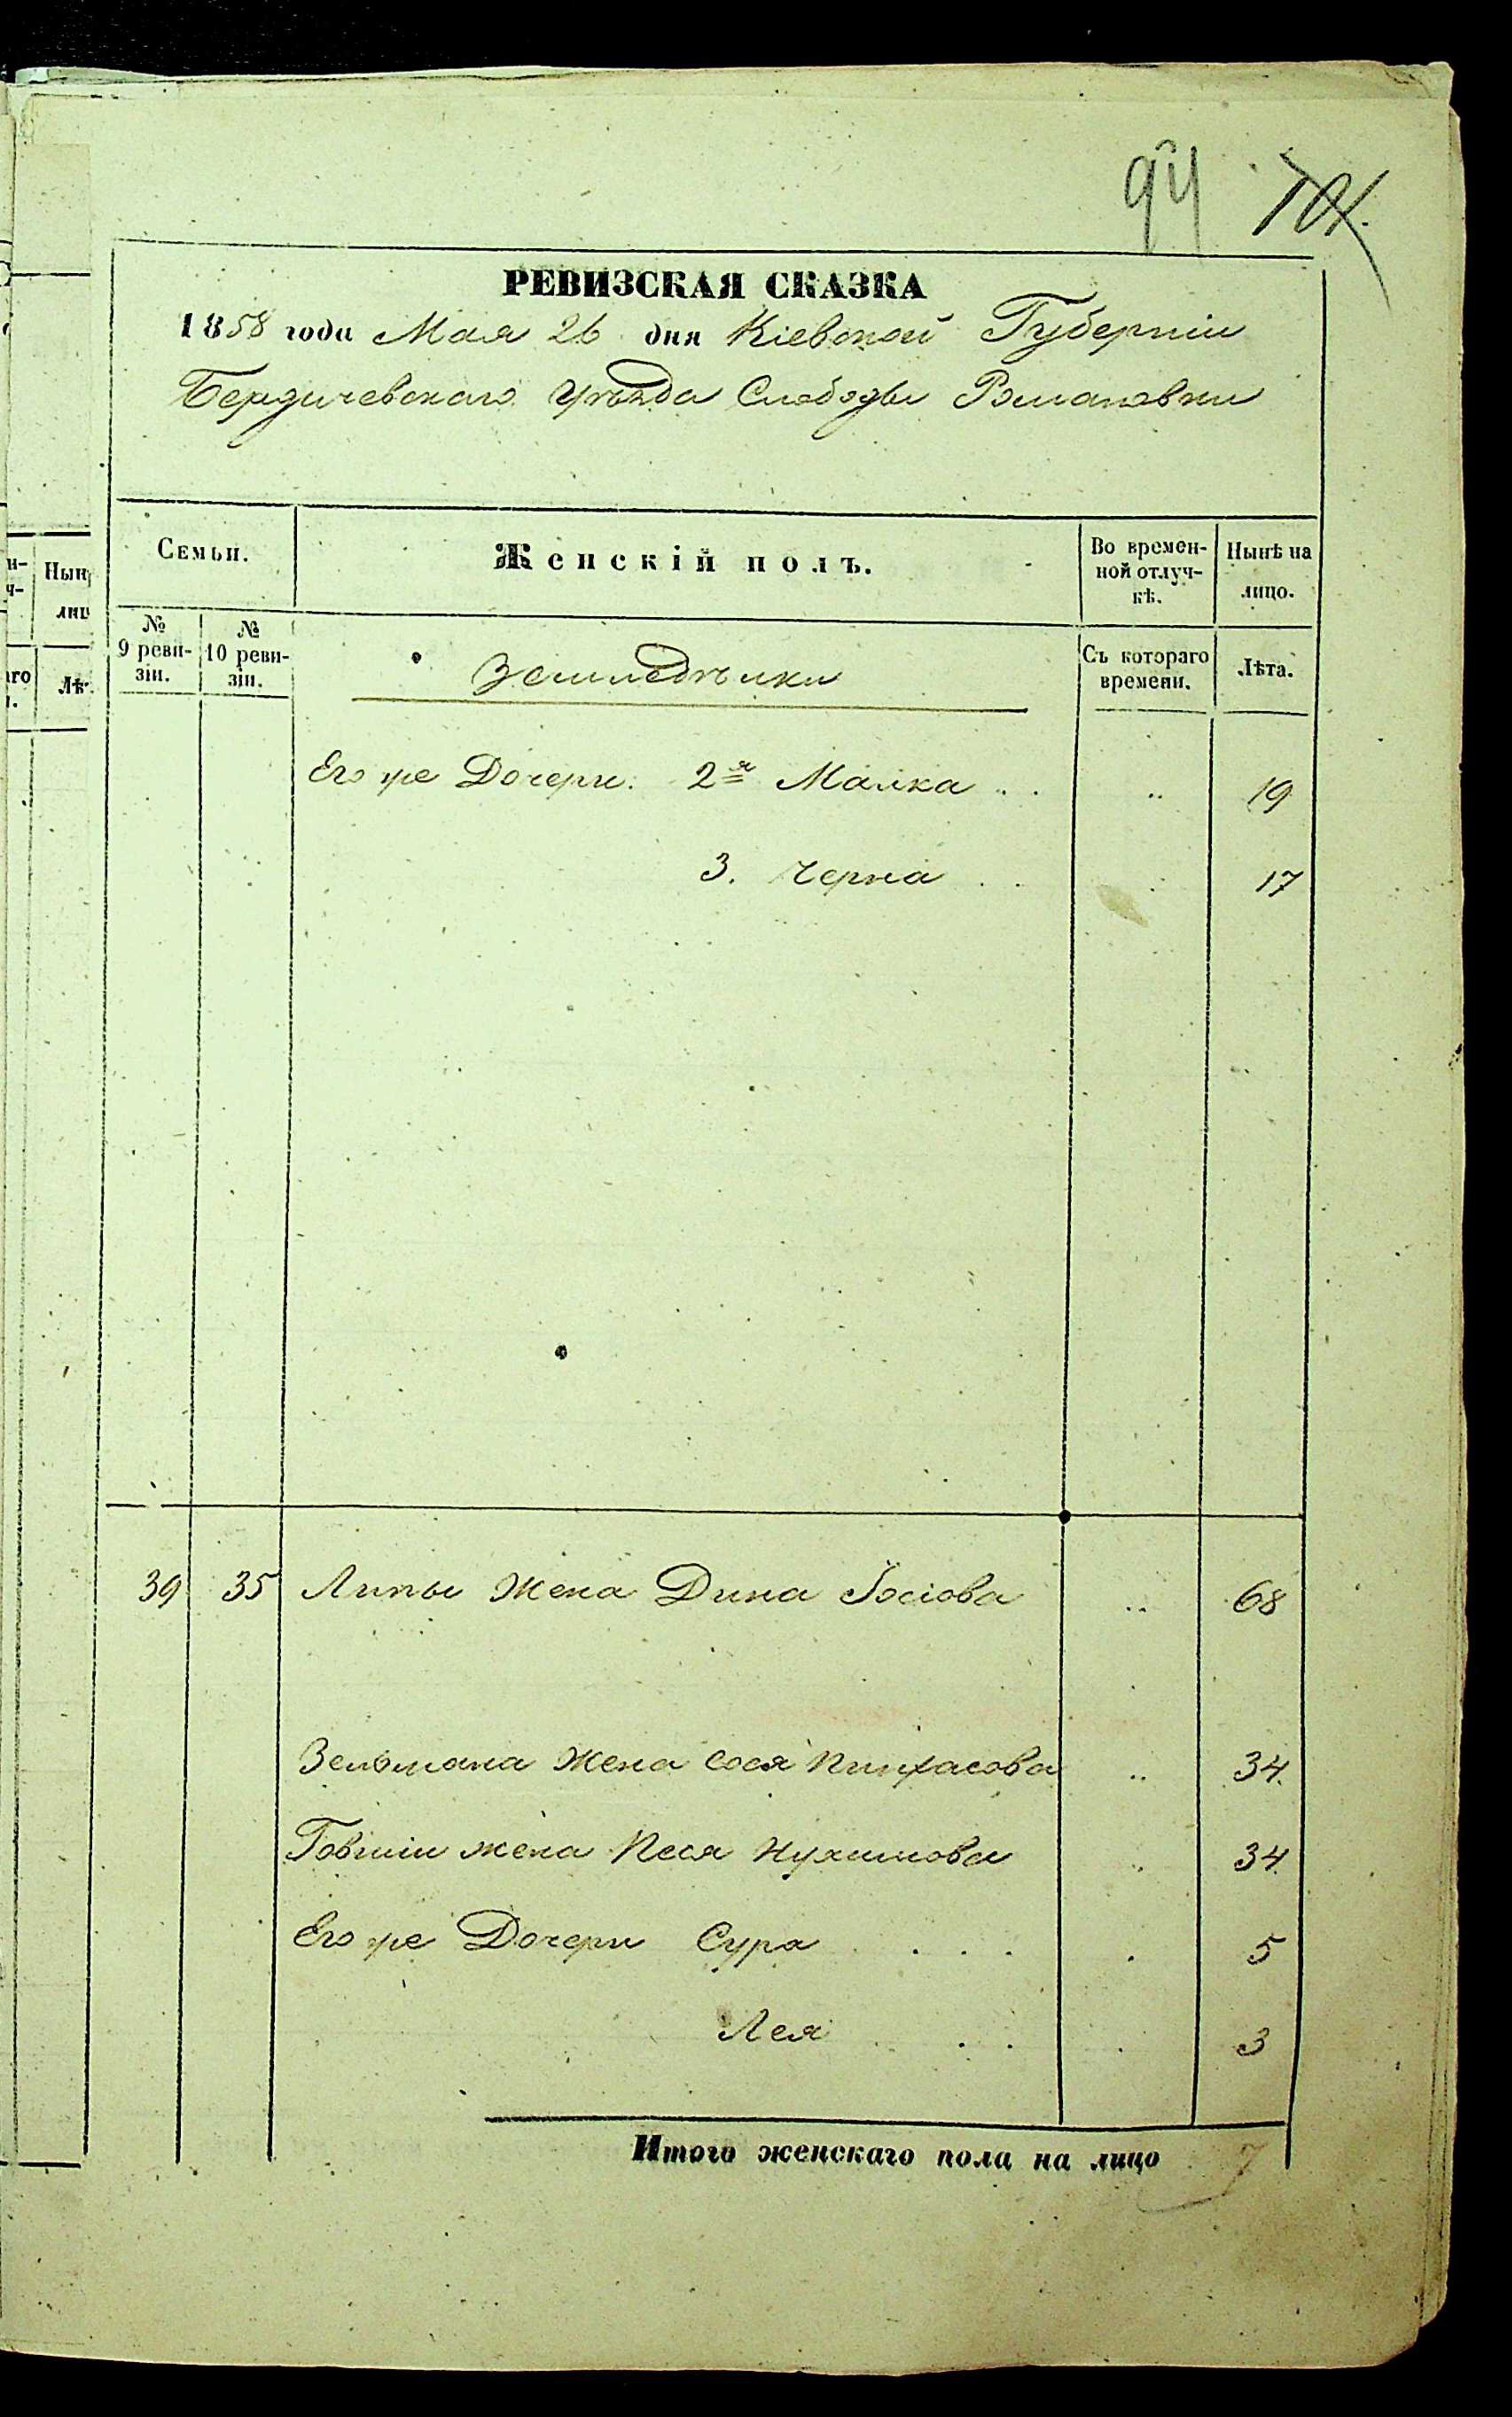 94 101.
РЕВИЗСКАЯ СКАЗКА
1858 года Мая 26 дня Кіевской Губерніи
Бердичевскаго Уѣзда Слободы Романовки
Семьи. Женскій полъ. Во времен- Нынѣ на
ной отлуч- лицо.
кѣ.
№ № Съ котораго Лѣта.
9 реви- 10 реви- времени.
зіи. зіи.
Землѣдѣлки
Его же Дочери: 2я Малка . . 19
3. Черна . . 17
39 35 Липы Жена Дина Іосіова 68
Зельмана Жена Сося Пинхасова 34.
Товшіи жена Песя Нухимова 34.
Его же Дочери Сура . . . . 5
Лея . . 3
Итого женскаго пола на лицо 7